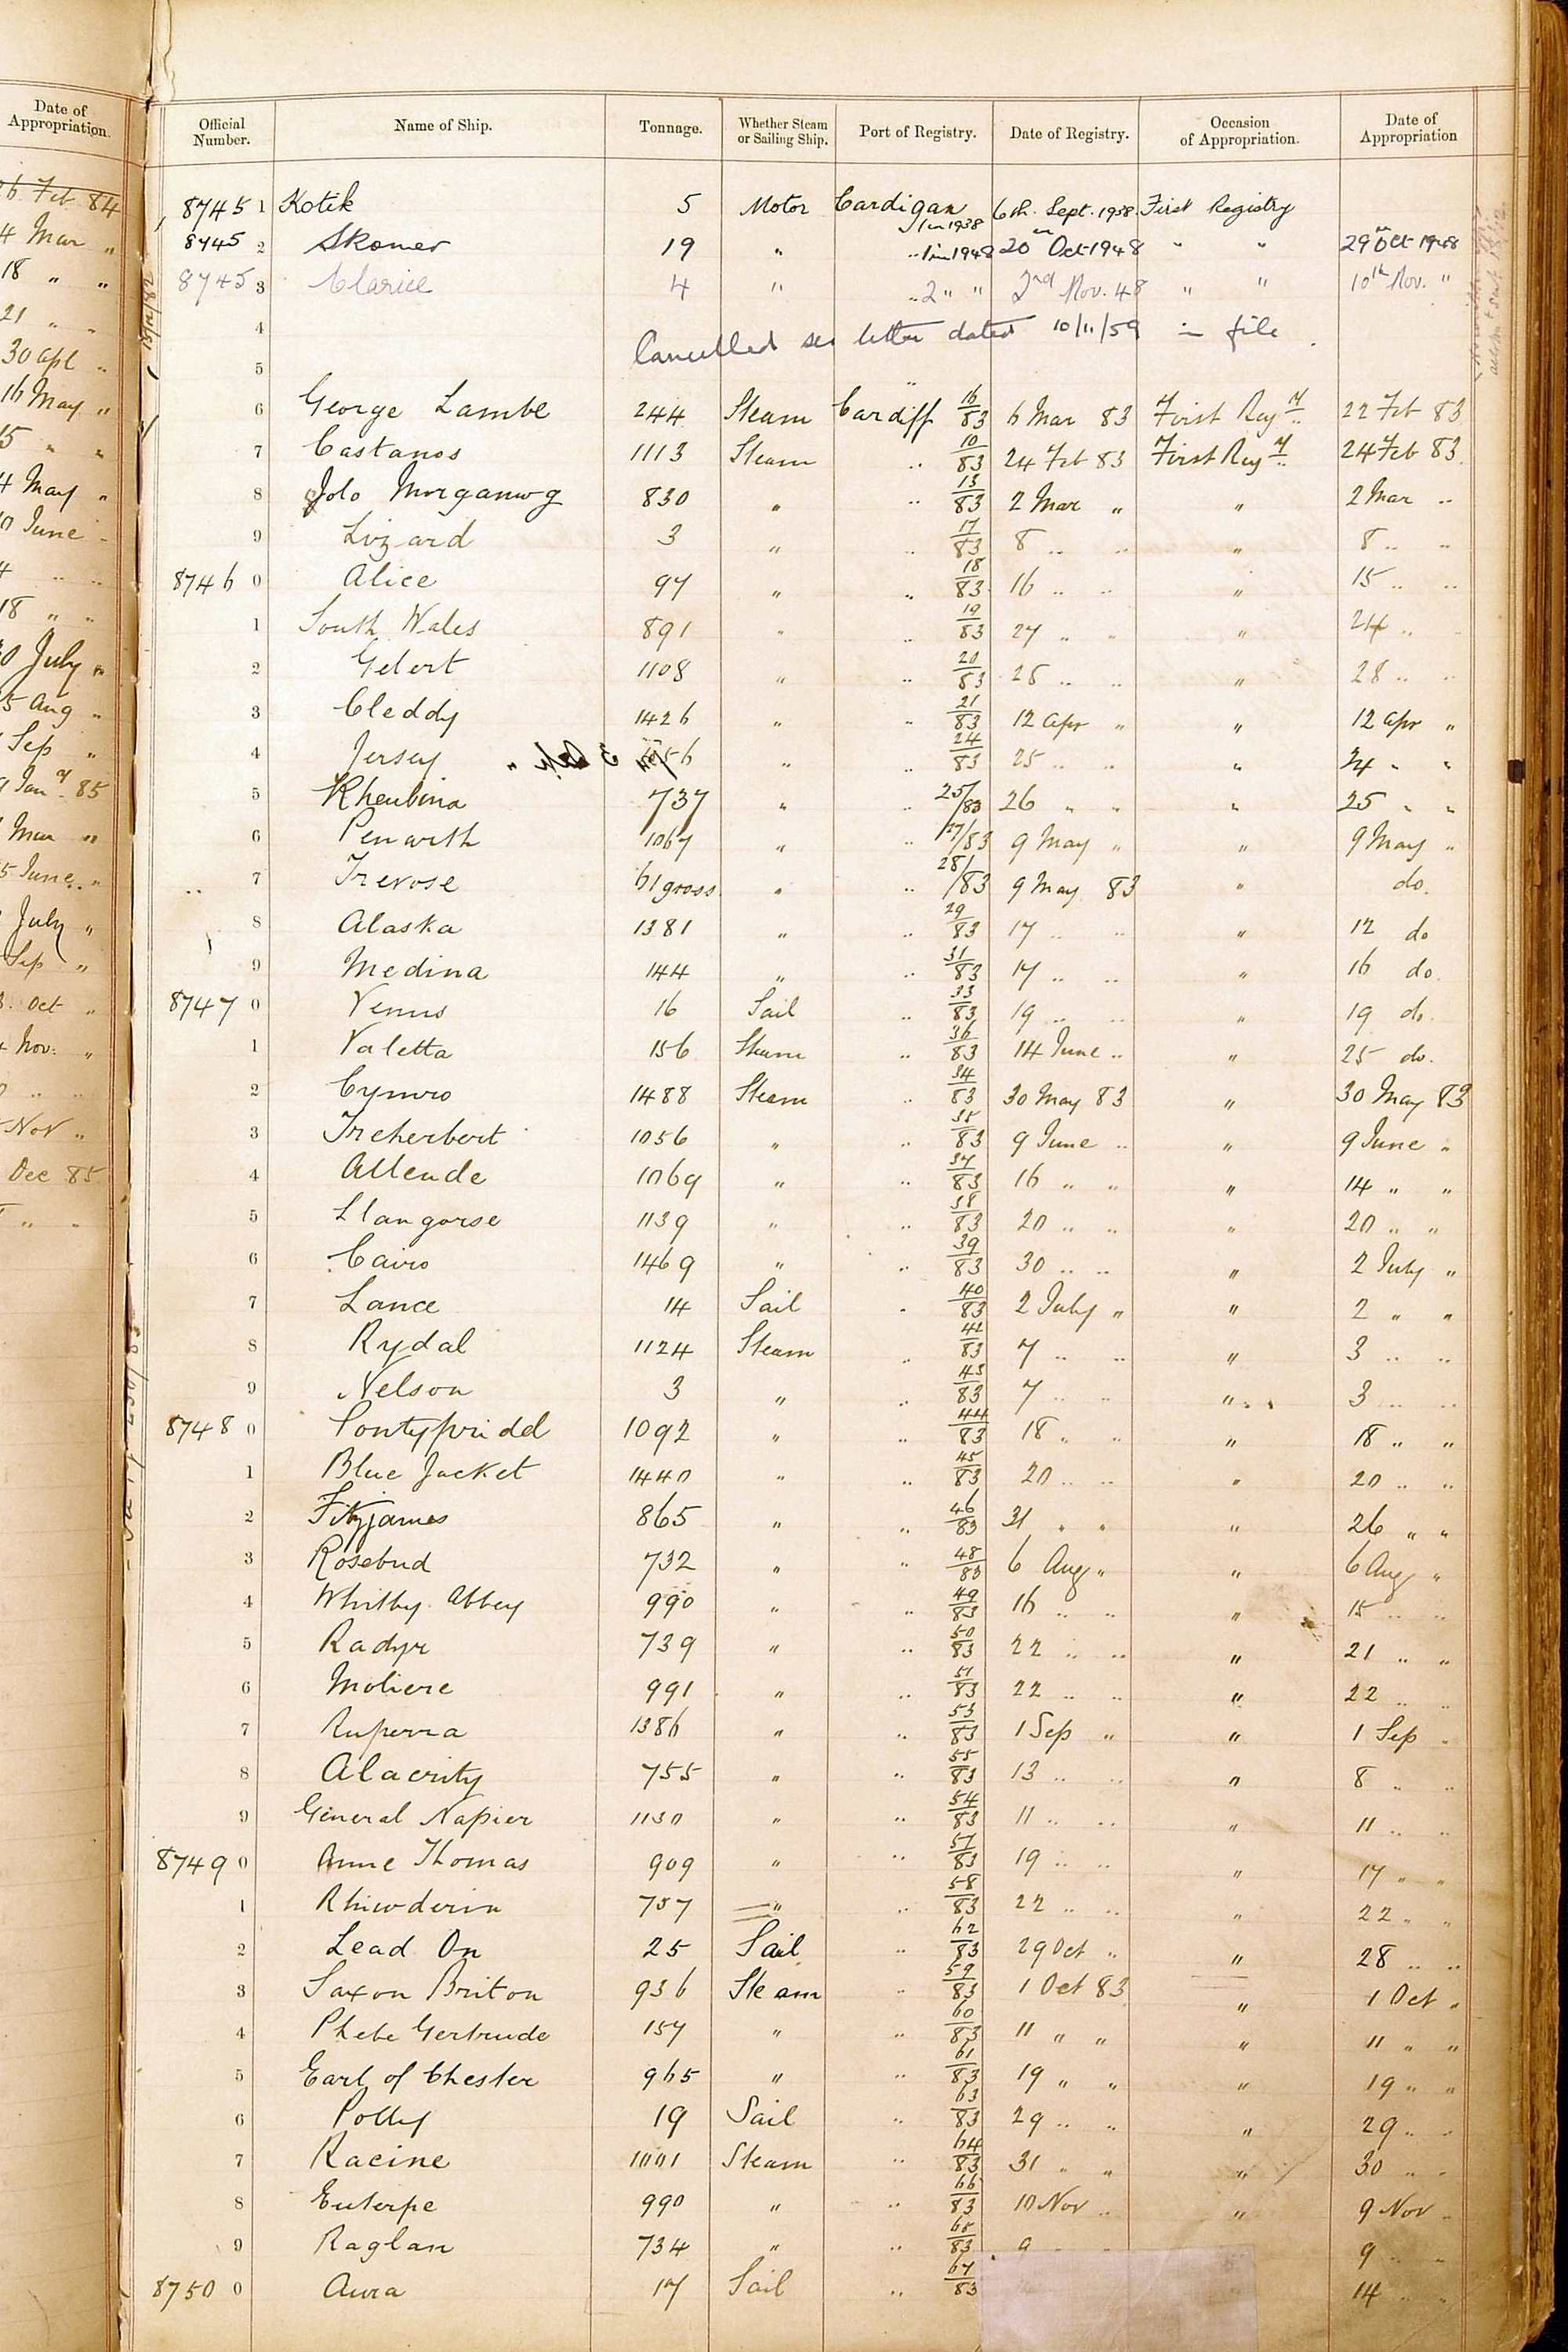 Date of Appropriation.
Feb 84
4 Mar "
18 " "
21 " "
30 Apl "
16 May "
15 " "
4 May "
June
18 " "
July "
Aug "
Sep "
Jany 85
Mar "
5 June "
July "
Sep "
Oct "
Nov. "
Nov "
Dec 85
Official Number. Name of Ship. Tonnage. Whether Steam or Sailing Ship. Port of Registry. Date of Registry. Occasion of Appropriation. Date of Appropriation
8745 1 Kotik 5 Motor Cardigan 1 in 1938 6th. Sept. 1938. First Registry
8745 2 Skomer 19 " .. 1 in 1948 20th Oct 1948 " " 29th Oct 1948
8745 3 Clarice 4 " .. 2 " " 2nd Nov. 48 " " 10th Nov. "
4 Cancelled see letter dated 10/11/59 in file.
5
6 George Lambe 244 Steam Cardiff 16/83 6 Mar 83 First Regy 22 Feb 83
7 Castanos 1113 Steam .. 10/83 24 Feb 83 First Regy 24 Feb 83
8 Iolo Morganwg 830 " .. 13/83 2 Mar " " 2 Mar ..
9 Lizard 3 " .. 17/83 8 .. .. " 8 .. ..
8746 0 Alice 97 " .. 18/83 16 .. .. " 15 .. ..
1 South Wales 891 " .. 19/83 27 .. " " 24 ..
2 Gelert 1108 " .. 20/83 28 .. .. " 28 .. ..
3 Cleddy 1426 " .. 21/83 12 Apr " " 12 Apr "
4 Jersey " .. 24/83 25 .. .. " 24 " "
5 Rheubina 737 " .. 25/83 26 " " " 25 " "
6 Penarth 1067 " .. 27/83 9 May " " 9 May "
.. 7 Trevose 61 gross " .. 28/83 9 May 83 " do.
8 Alaska 1381 " .. 29/83 17 .. .. " 12 do
9 Medina 144 " .. 31/83 17 .. .. " 16 do.
8747 0 Venus 16 Sail .. 33/83 19 .. .. " 19 do.
1 Valetta 156 Steam .. 36/83 14 June .. " 25 do.
2 Cymro 1488 Steam .. 34/83 30 May 83 " 30 May 83
3 Treherbert 1056 " .. 35/83 9 June .. " 9 June "
4 Allende 1069 " .. 37/83 16 " " " 14 " "
5 Llangorse 1139 " .. 38/83 20 .. .. " 20 .. "
6 Cairo 1469 " .. 39/83 30 .. .. " 2 July "
7 Lance 14 Sail .. 40/83 2 July " " 2 " "
8 Rydal 1124 Steam .. 42/83 7 .. .. " 3 .. ..
9 Nelson 3 " .. 43/83 7 .. .. " 3 .. ..
8748 0 Pontypridd 1092 " .. 44/83 18 " .. " 18 .. "
1 Blue Jacket 1440 " .. 45/83 20 .. .. " 20 .. ..
2 Fitzjames 865 " .. 46/83 31 " " " 26 " "
3 Rosebud 732 " .. 48/83 6 Aug " " 6 Aug "
4 Whitby Abbey 990 " .. 49/83 16 .. .. " 15 .. ..
5 Radyr 739 " .. 50/83 22 .. .. " 21 .. "
6 Moliere 991 " .. 51/83 22 .. .. " 22 .. ..
7 Ruperra 1386 " .. 53/83 1 Sep " " 1 Sep "
8 Alacrity 755 " .. 55/83 13 .. .. " 8 " ..
9 General Napier 1130 " .. 54/83 11 .. .. " 11 .. ..
8749 0 Anne Thomas 909 " .. 57/83 19 .. .. " 17 " "
1 Rhiwderin 757 " .. 58/83 22 .. .. " 22 " "
2 Lead On 25 Sail .. 62/83 29 Oct " " 28 .. ..
3 Saxon Briton 936 Steam .. 59/83 1 Oct 83 " 1 Oct "
4 Phebe Gertrude 157 " .. 60/83 11 " " " 11 " "
5 Earl of Chester 965 " .. 61/83 19 " " " 19 " "
6 Polly 19 Sail .. 63/83 29 .. " " 29 .. ..
7 Racine 1001 Steam .. 64/83 31 " " " 30 .. "
8 Euterpe 990 " .. 66/83 10 Nov .. " 9 Nov ..
9 Raglan 734 " .. 65/83 9 " " 9 .. "
8750 0 Aura 17 Sail .. 67/83 14 .. "